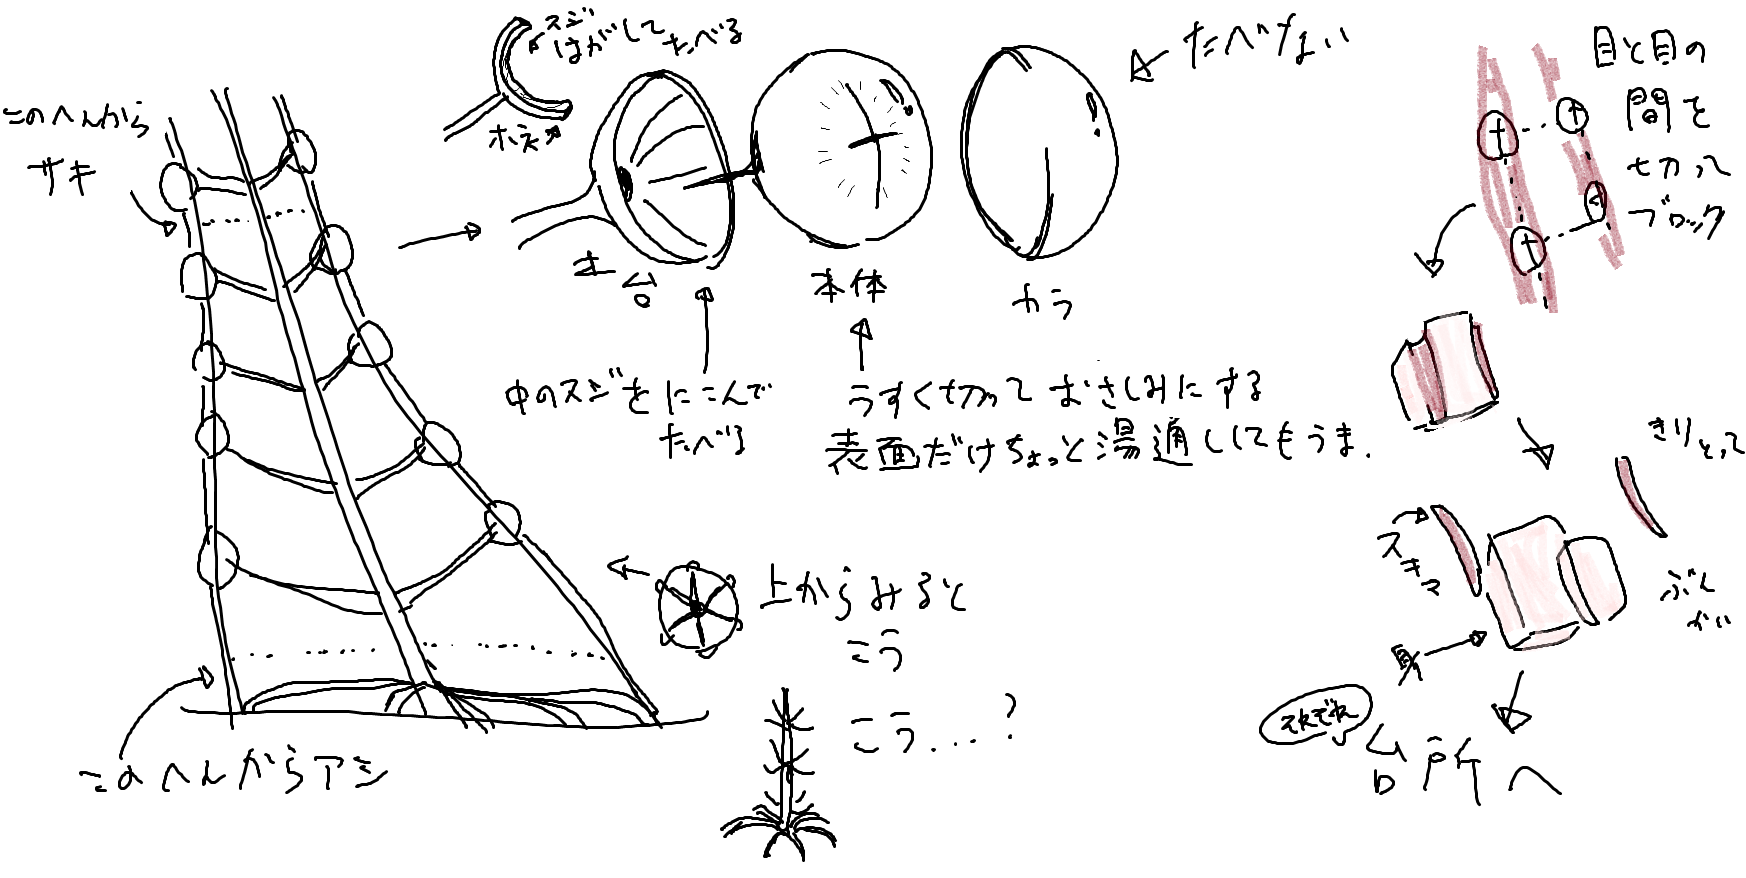 このへんから
サキ
スジ
はがして
たべる
ホネ
土台
中のスジをにこんで
たべる
本体
うすく切って おさしみにする
表面だけちょっと湯通ししてもうま.
カラ
たべない
上からみると
こう
こう...?
このへんからアシ
目と目の
間を
切って
ブロック
きりとって
スキマ
ぶん
かい
身
それぞれ
台所へ